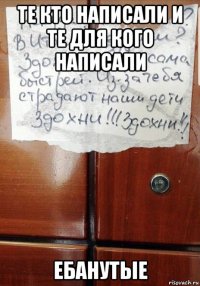 ТЕ КТО НАПИСАЛИ И
ТЕ ДЛЯ КОГО
НАПИСАЛИ
сама
быстрей. Из за тебя
страдают наши дети
Здохни!!! Здохни!!
ЕБАНУТЫЕ
risovach.ru